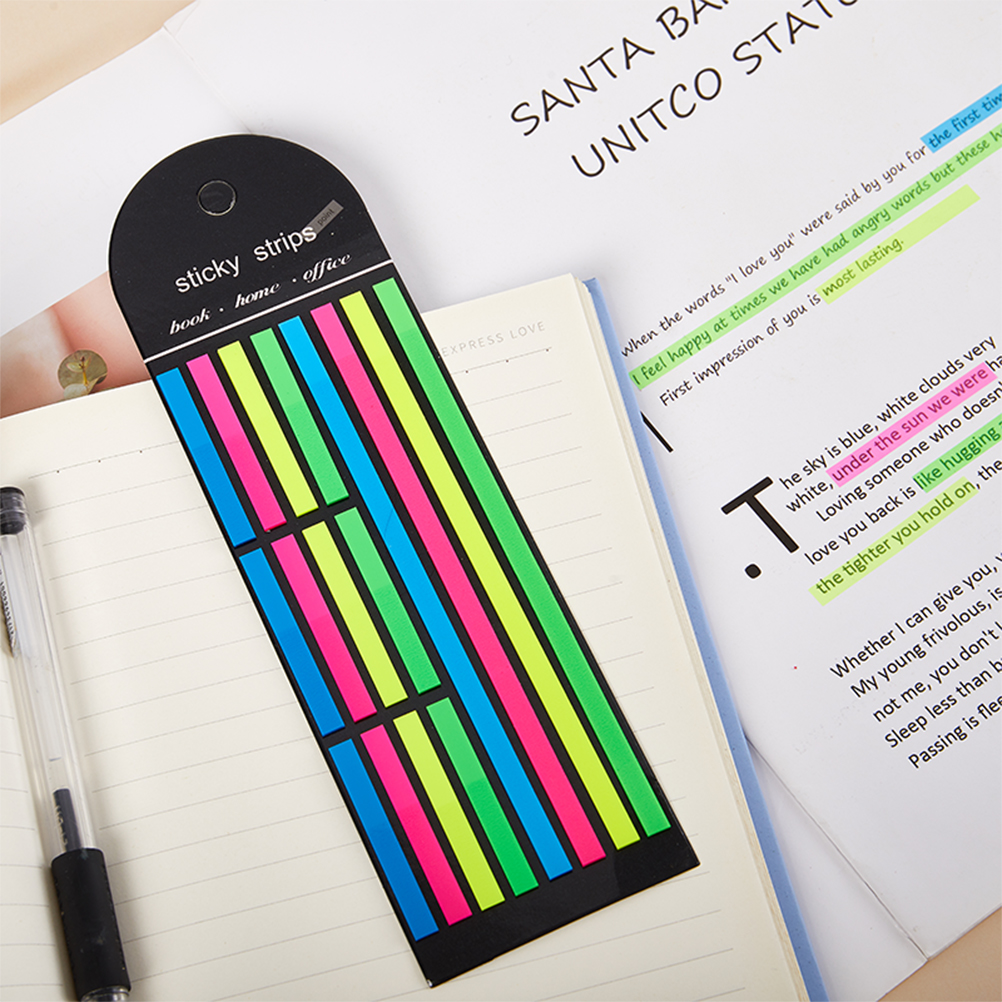 SANTA BA
UNITCO STATU
sticky strips
point
book · home · office
EXPRESS LOVE
When the words "I love you" were said by you for the first tim
I feel happy at times we have had angry words but these h
First impression of you is most lasting.
The sky is blue, white clouds very
white, under the sun we were ha
Loving someone who doesn
love you back is like hugging
the tighter you hold on, the
Whether I can give you, y
My young frivolous, is
not me, you don't l
Sleep less than b
Passing is flee